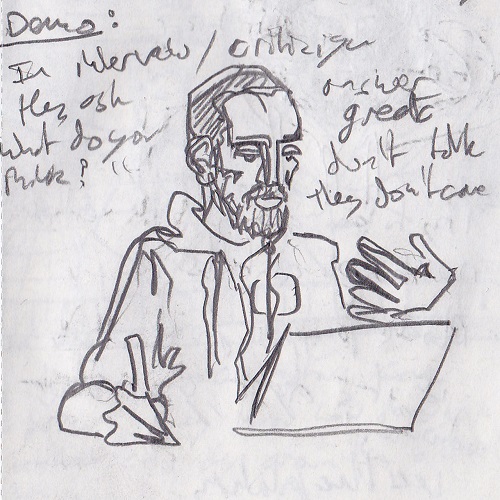 Demo:
In interviews / criticism
they ask
what do you
think?"
answer
great
don't talk
they don't care